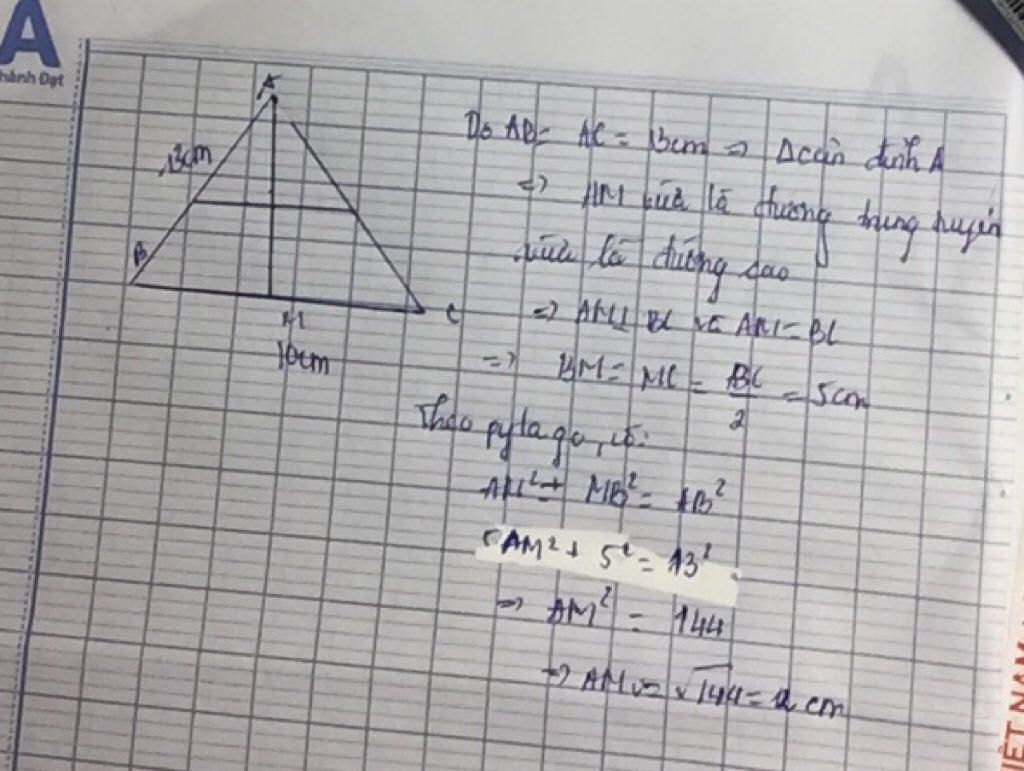 A
Thành Đạt
A
13cm
B
M
C
10cm
Do AB = AC = 13cm => Δ cân đỉnh A
=> AM vừa là đường trung tuyến
vừa là đường cao
=> AM ⊥ BC và AM = BC
=> BM = MC = BC/2 = 5cm
Theo pytago, có:
AM² + MB² = AB²
AM² + 5² = 13²
=> AM² = 144
=> AM = √144 = 12 cm
IỆT NAM